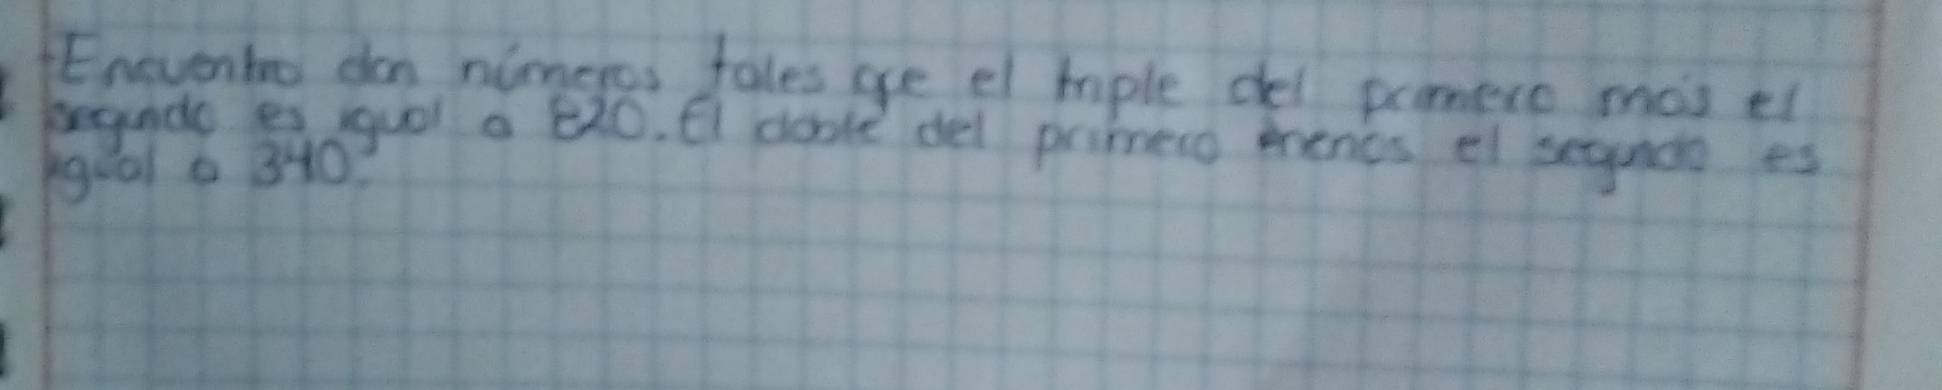 Encuentro don números tales qe el triple del primero más el
segundo es igual a 820. El doble del primero menos el segundo es
igual a 340.